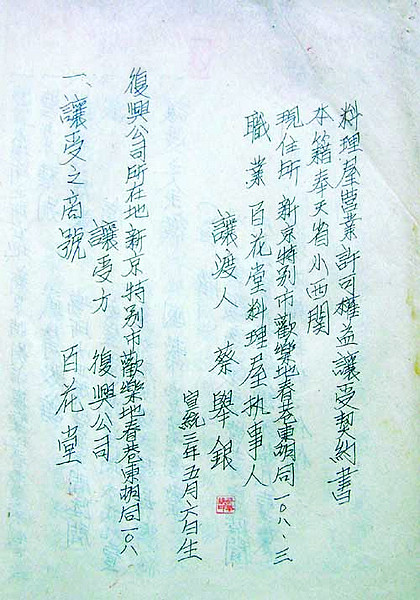 料理屋營業許可權益讓受契約書
本籍奉天省小西關
現住所 新京特别市歡樂地春巷東胡同一〇八、三
職業 百花堂料理屋执事人
讓渡人 蔡舉銀
宣統三年五月六日生
復興公司所在地 新京特别市歡樂地春巷東胡同一〇八
讓受方 復興公司
一、讓受之商號 百花堂